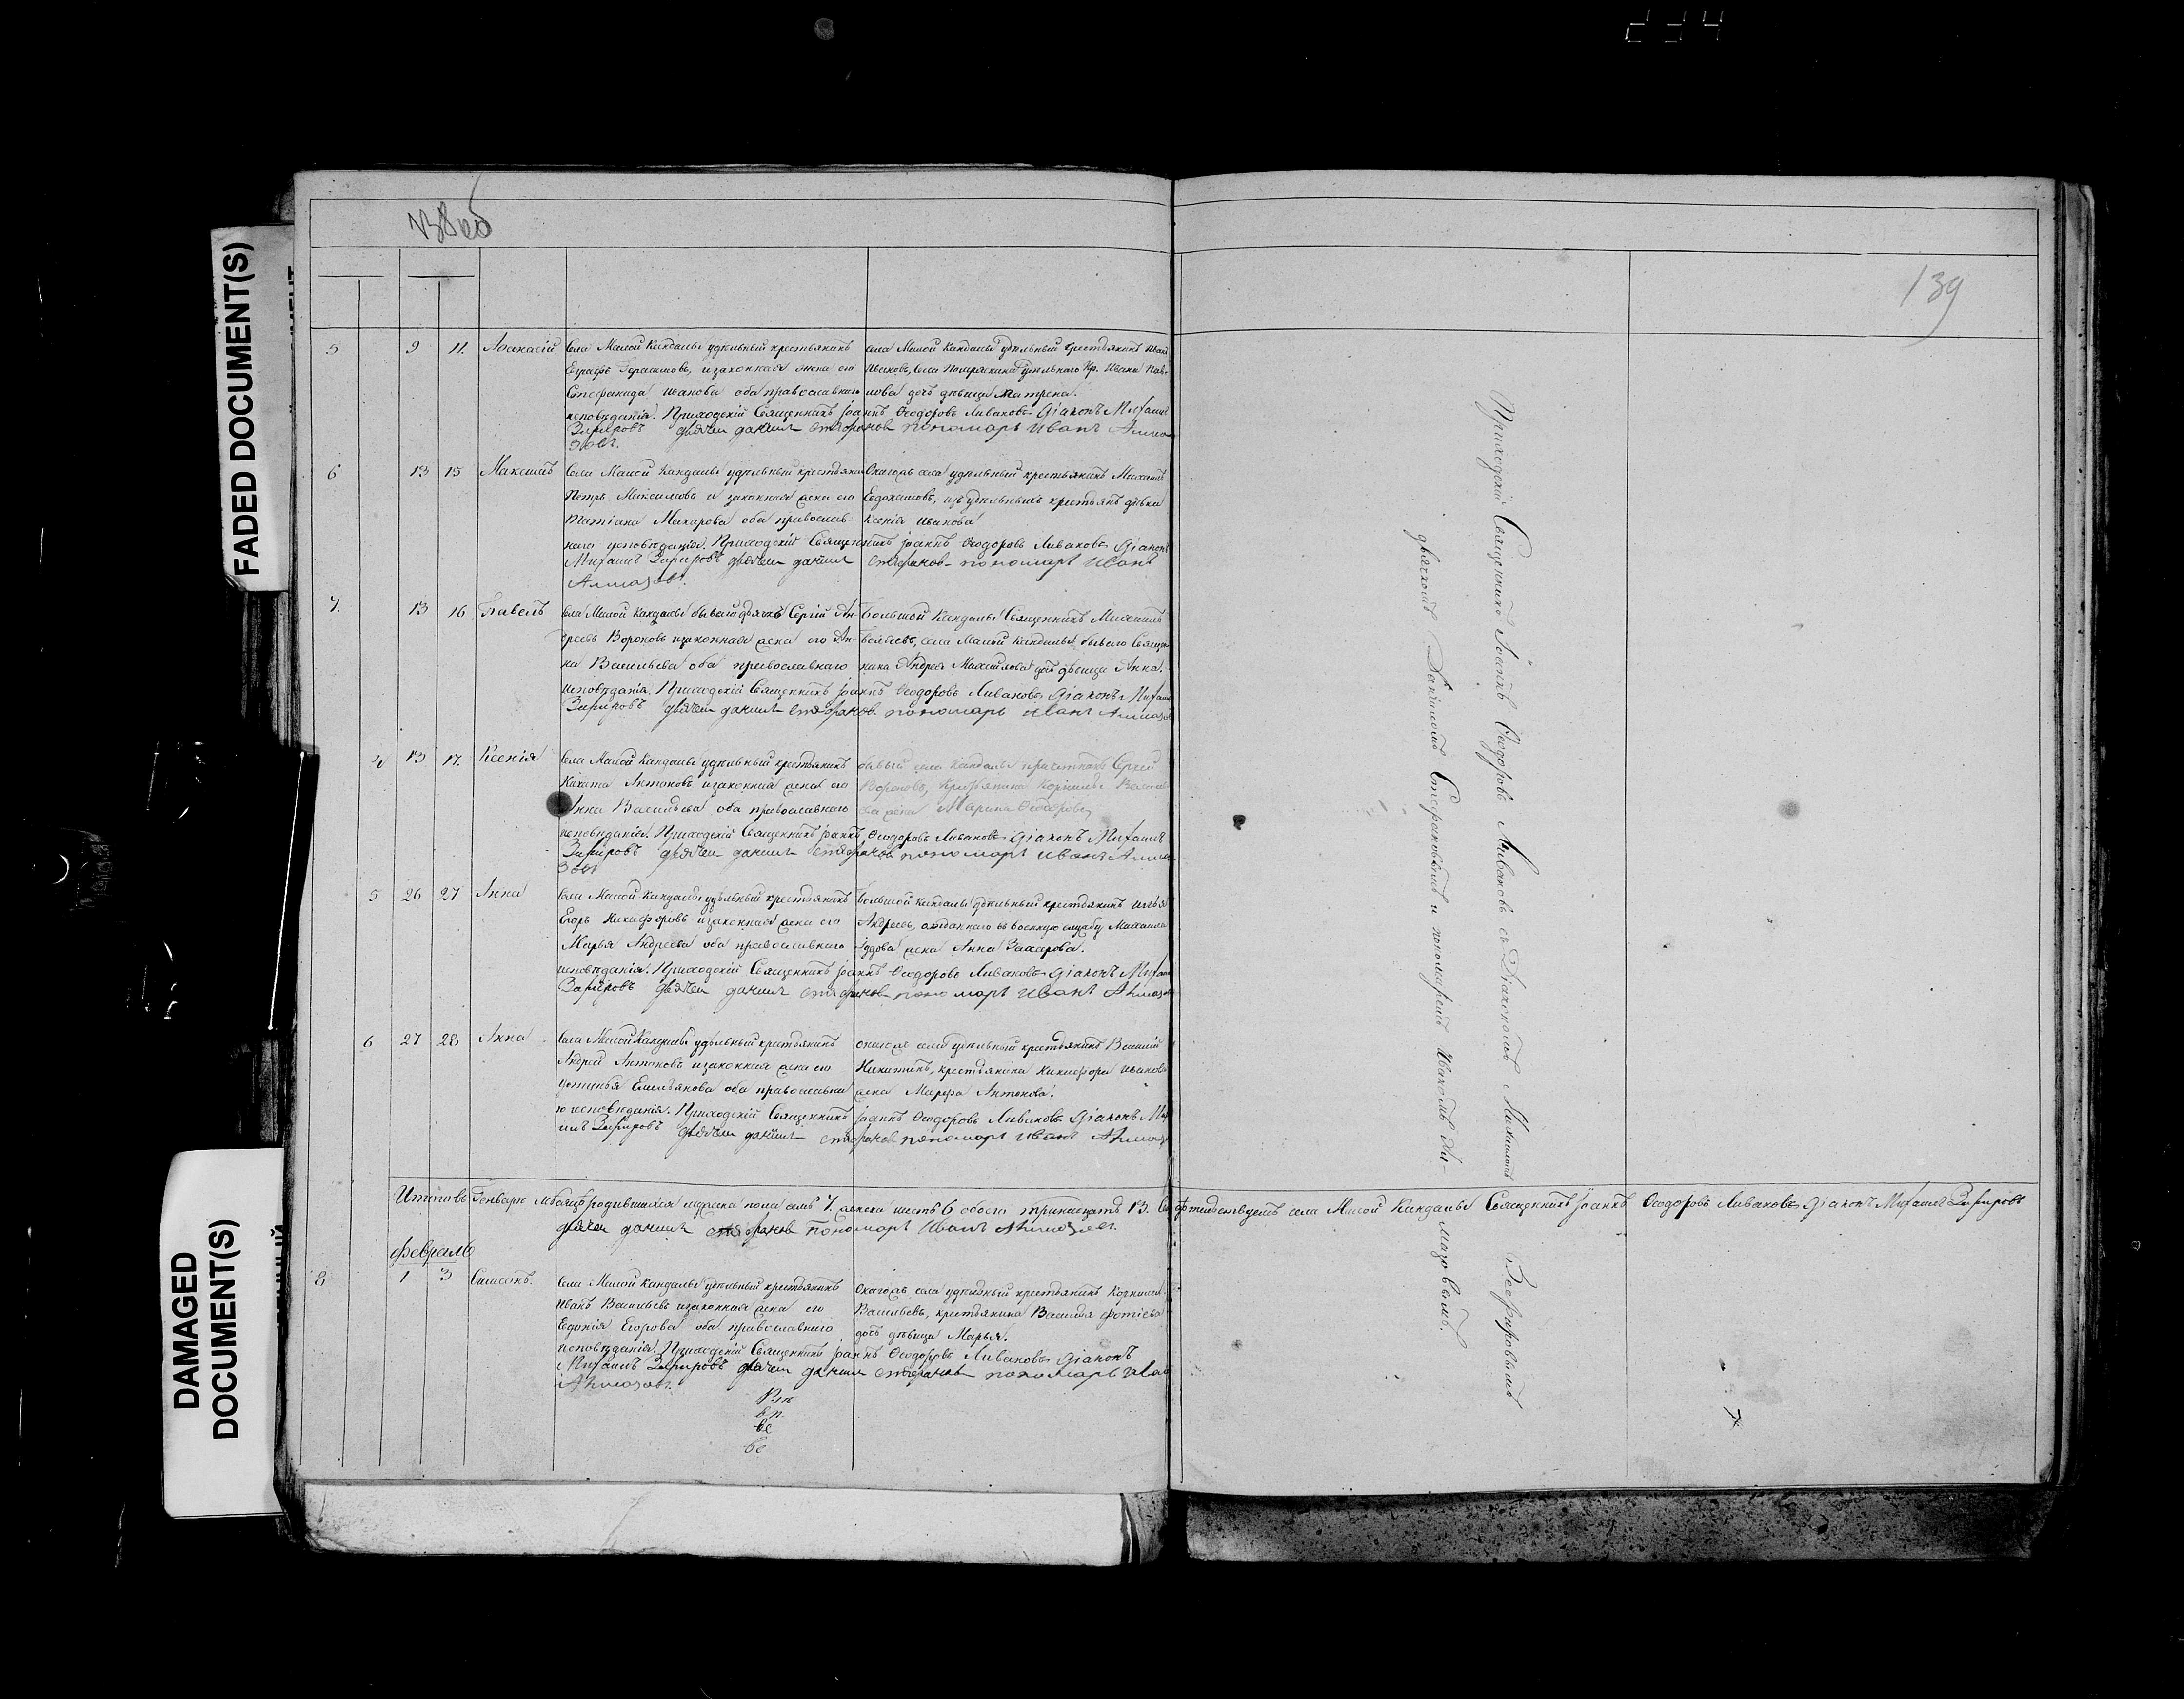 234
FADED DOCUMENT(S)
DAMAGED
DOCUMENT(S)
139
5 9 11. Аѳанасій
Села Малой Кандалы удѣльный крестьянинъ
Еграфъ Герасимовъ, и законная жена его
Стефанида Иванова оба православнаго
исповѣданія. Приходскій Священникъ Іоаннъ Ѳеодоровъ Ливановъ Діаконъ Михаилъ
Зефировъ дьячекъ Даніилъ Стефановъ пономарь Иванъ Алма
зовъ.
села Малой Кандалы удѣльный крестьянинъ Иванъ
Ивановъ, села Помряскина удѣльнаго Кр. Ивана Пав-
лова дочь дѣвица Матрена.
6 13 15 Максимъ
Села Малой Кандалы удѣльный крестьянин
Петръ Максимовъ и законная жена его
Татіана Макарова оба православ-
наго исповѣданія. Приходскій Священникъ Іоаннъ Ѳеодоровъ Ливановъ Діаконъ
Михаилъ Зефировъ дьячекъ Даніилъ Стефановъ пономарь Иванъ
Алмазовъ.
Онагожъ села удѣльный крестьянинъ Михаилъ
Евдокимовъ, изъ удѣльныхъ крестьянъ дѣвка
Ксенія Иванова
7. 13 16 Павелъ
села Малой Кандалы бывый дьячекъ Сергій Ан-
дреевъ Вороновъ и законная жена его Ан-
на Васильева оба православнаго
исповѣданія. Приходскій Священникъ Іоаннъ Ѳеодоровъ Ливановъ Діаконъ Михаилъ
Зефировъ дьячекъ Даніилъ Стефановъ пономарь Иванъ Алмазо
Большой Кандалы Священникъ Михаилъ
села Малой Кандалы бывшаго Свяще-
ника Андрея Михайлова дочь дѣвица Анна.
4 13 17. Ксенія
Села Малой Кандалы удѣльный крестьянинъ
Никита Антоновъ и законная жена его
Анна Васильева оба православнаго
исповѣданія. Приходскій Священникъ Іоаннъ Ѳеодоровъ Ливановъ Діаконъ Михаилъ
Зефировъ дьячекъ Даніилъ Стефановъ пономарь Иванъ Алма
зовъ
бывый села Кандалы причетникъ Сергій
Вороновъ, Крестьянина Корнилы Василье
ва жена Марина Ѳеодорова
5 26 27 Анна
Села Малой Кандалы удѣльный крестьянинъ
Егоръ Никифоровъ и законная жена его
Марья Андреева оба православнаго
исповѣданія. Приходскій Священникъ Іоаннъ Ѳеодоровъ Ливановъ Діаконъ Михаи
Зефировъ дьячекъ Даніилъ Стефановъ пономарь Иванъ Алмазо
Большой Кандалы удѣльный крестьянинъ Илья
Андреевъ, отданнаго въ военную службу Михаила
жена Анна Захарова.
6 27 28 Анна
Села Малой Кандалы удѣльный крестьянинъ
Андрей Антоновъ и законная жена его
Устинья Емельянова оба православна
го исповѣданія. Приходскій Священникъ Іоаннъ Ѳеодоровъ Ливановъ Діаконъ Миха
илъ Зефировъ дьячекъ Даніилъ Стефановъ пономарь Иванъ Алмазо
онагожъ села удѣльный крестьянинъ Василій
Никитинъ, крестьянина Никифора Иванова
жена Марфа Антонова.
Итого въ Генварѣ мѣсяцѣ родившихся мужеска пола семь 7. женска шесть 6 обоего тринадцать 13. Свидѣтельствуемъ села Малой Кандалы Священникъ Іоаннъ Ѳеодоровъ Ливановъ Діаконъ Михаилъ Зефировъ
дьячекъ Даніилъ Стефановъ Пономарь Иванъ Алмазовъ.
Февраль
8 1 3 Симеонъ.
Села Малой Кандалы удѣльный крестьянинъ
Иванъ Васильевъ и законная жена его
Евдокія Егорова оба православнаго
исповѣданія. Приходскій Священникъ Іоаннъ Ѳеодоровъ Ливановъ Діаконъ
Михаилъ Зефировъ дьячекъ Даніилъ Стефановъ пономарь Иван
Алмазовъ.
Онагожъ села удѣльный крестьянинъ Корнилій
Васильевъ, крестьянина Василья Фотіева
дочь дѣвица Марья.
Приходскій Священникъ Іоаннъ Ѳеодоровъ Ливановъ съ Діакономъ Михаиломъ Зефировымъ
дьячкомъ Даніиломъ Стефановымъ и пономаремъ Иваномъ Ал-
мазовымъ.